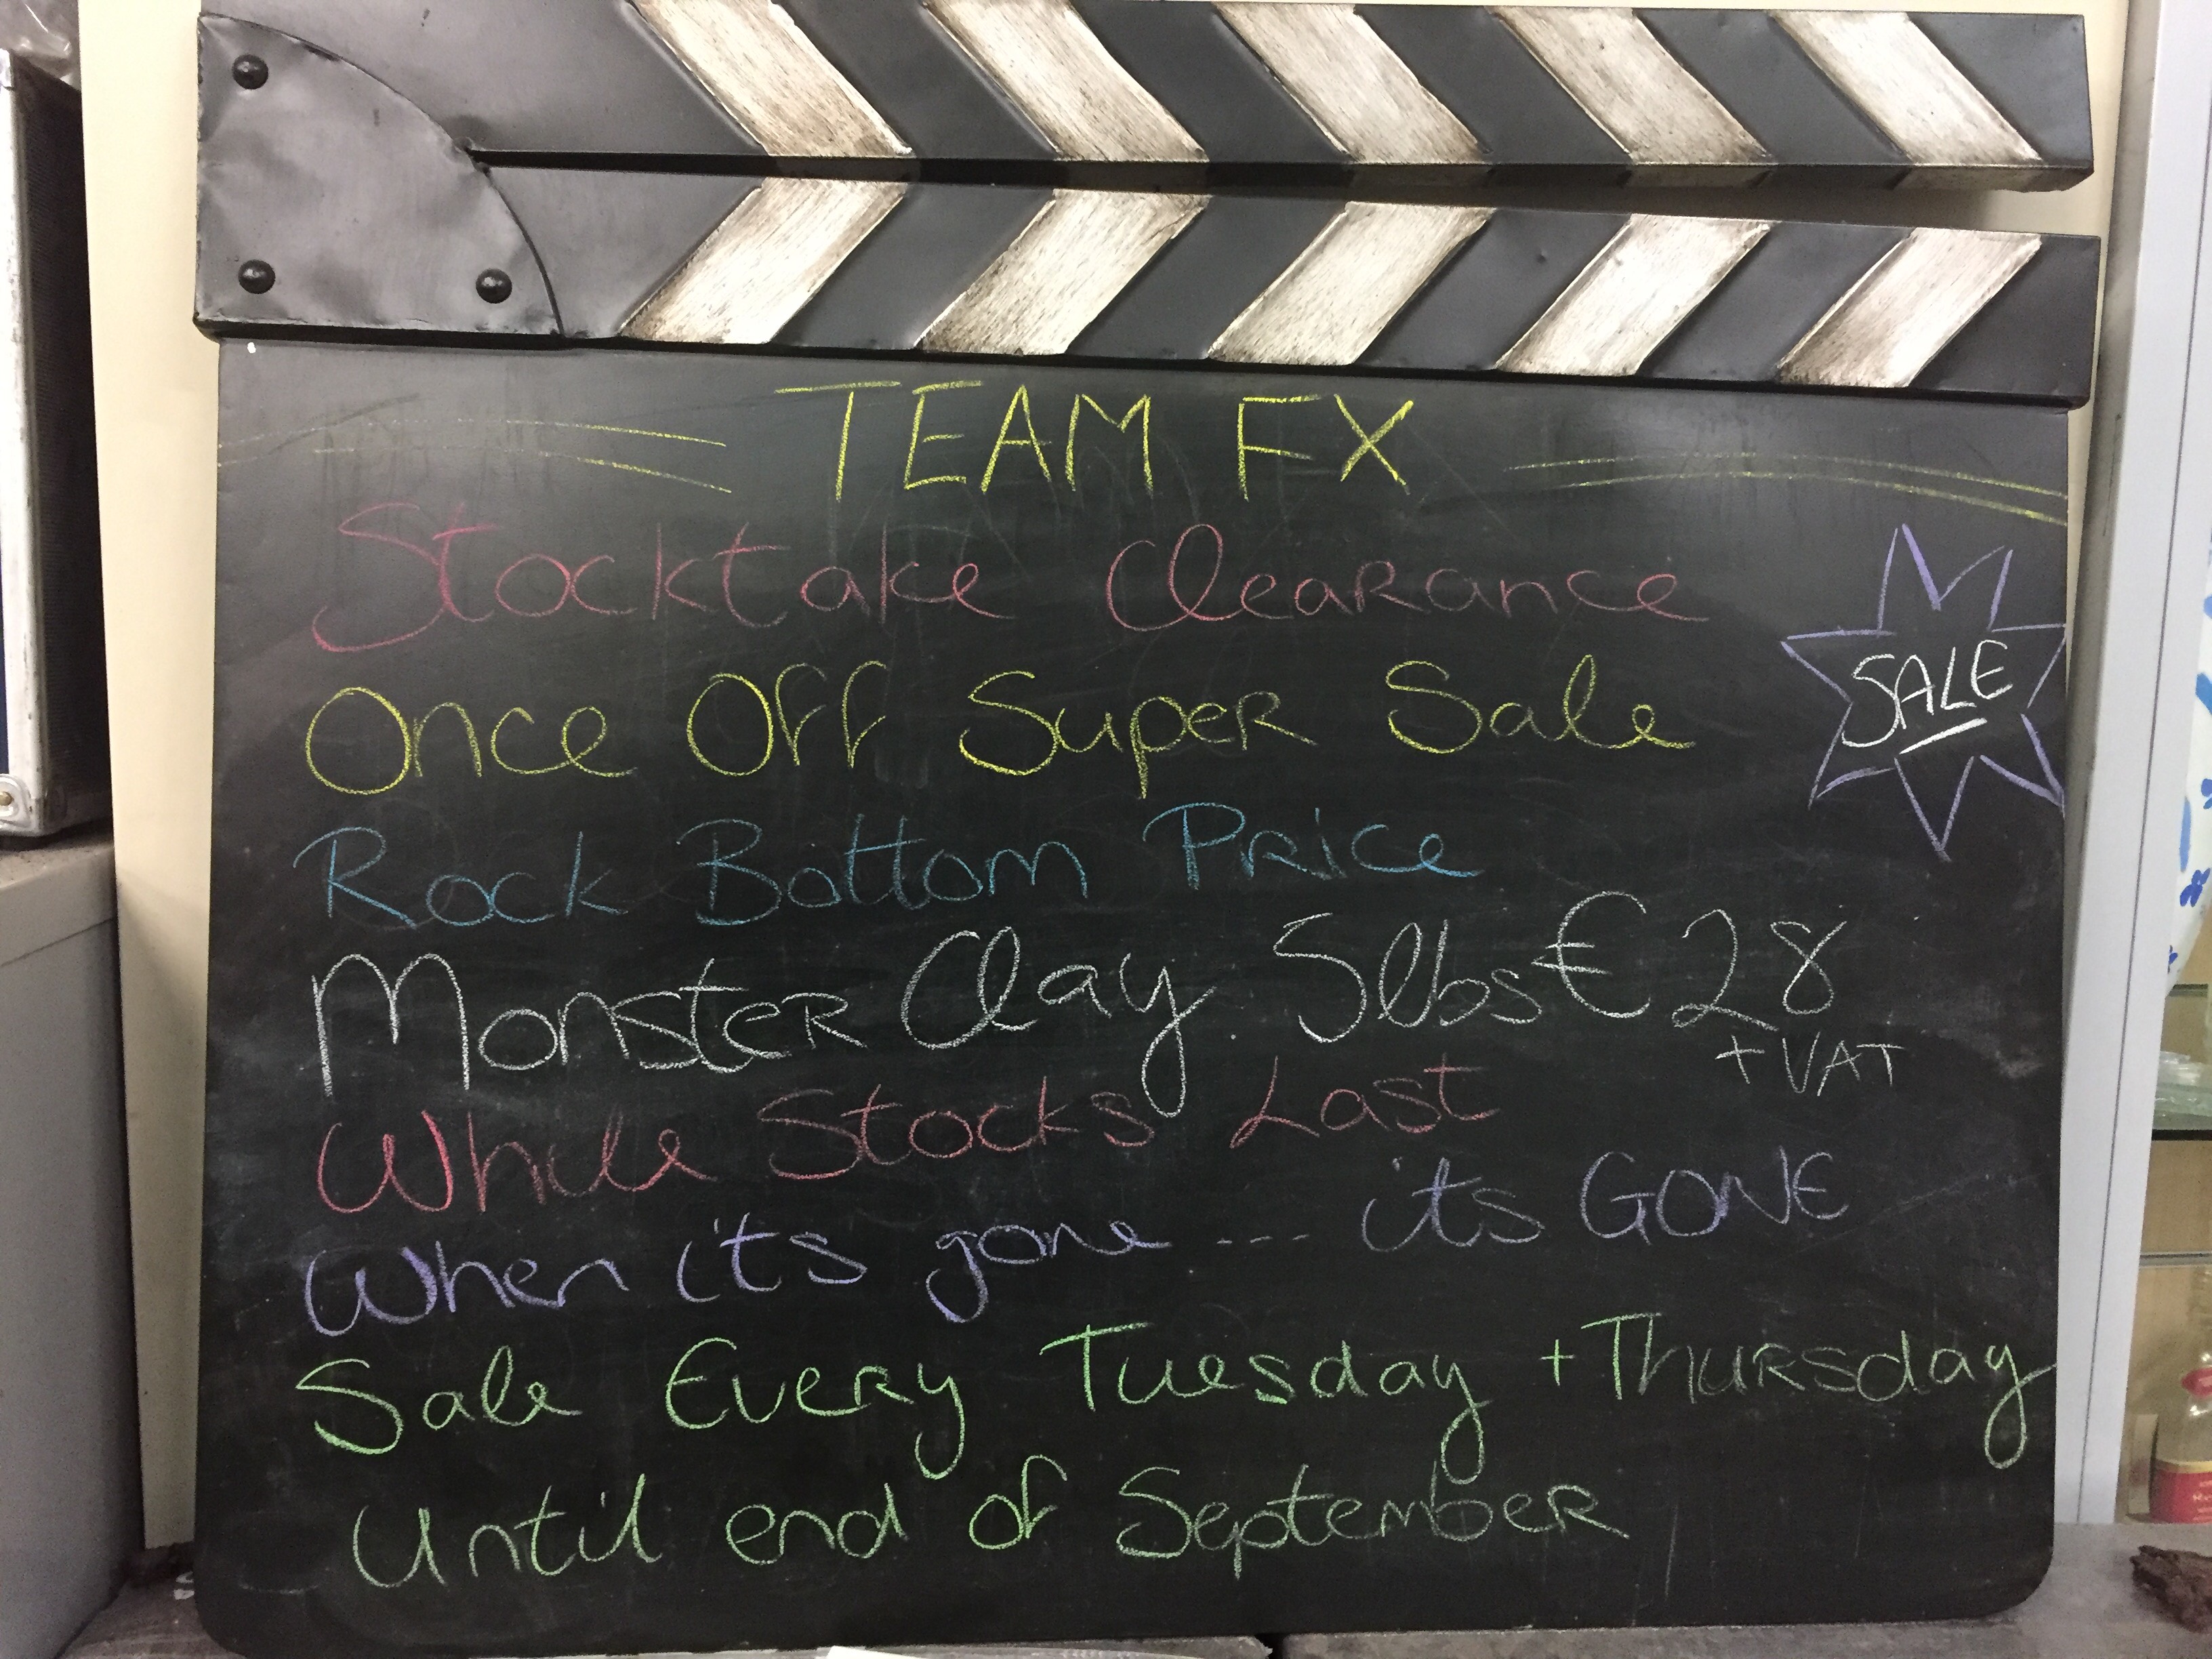 TEAM FX
Stocktake Clearance
Once Off Super Sale
SALE
Rock Bottom Price
Monster Clay 5lbs €28
+ VAT
While Stocks Last
When it's gone --- it's GONE
Sale Every Tuesday + Thursday
Until end of September